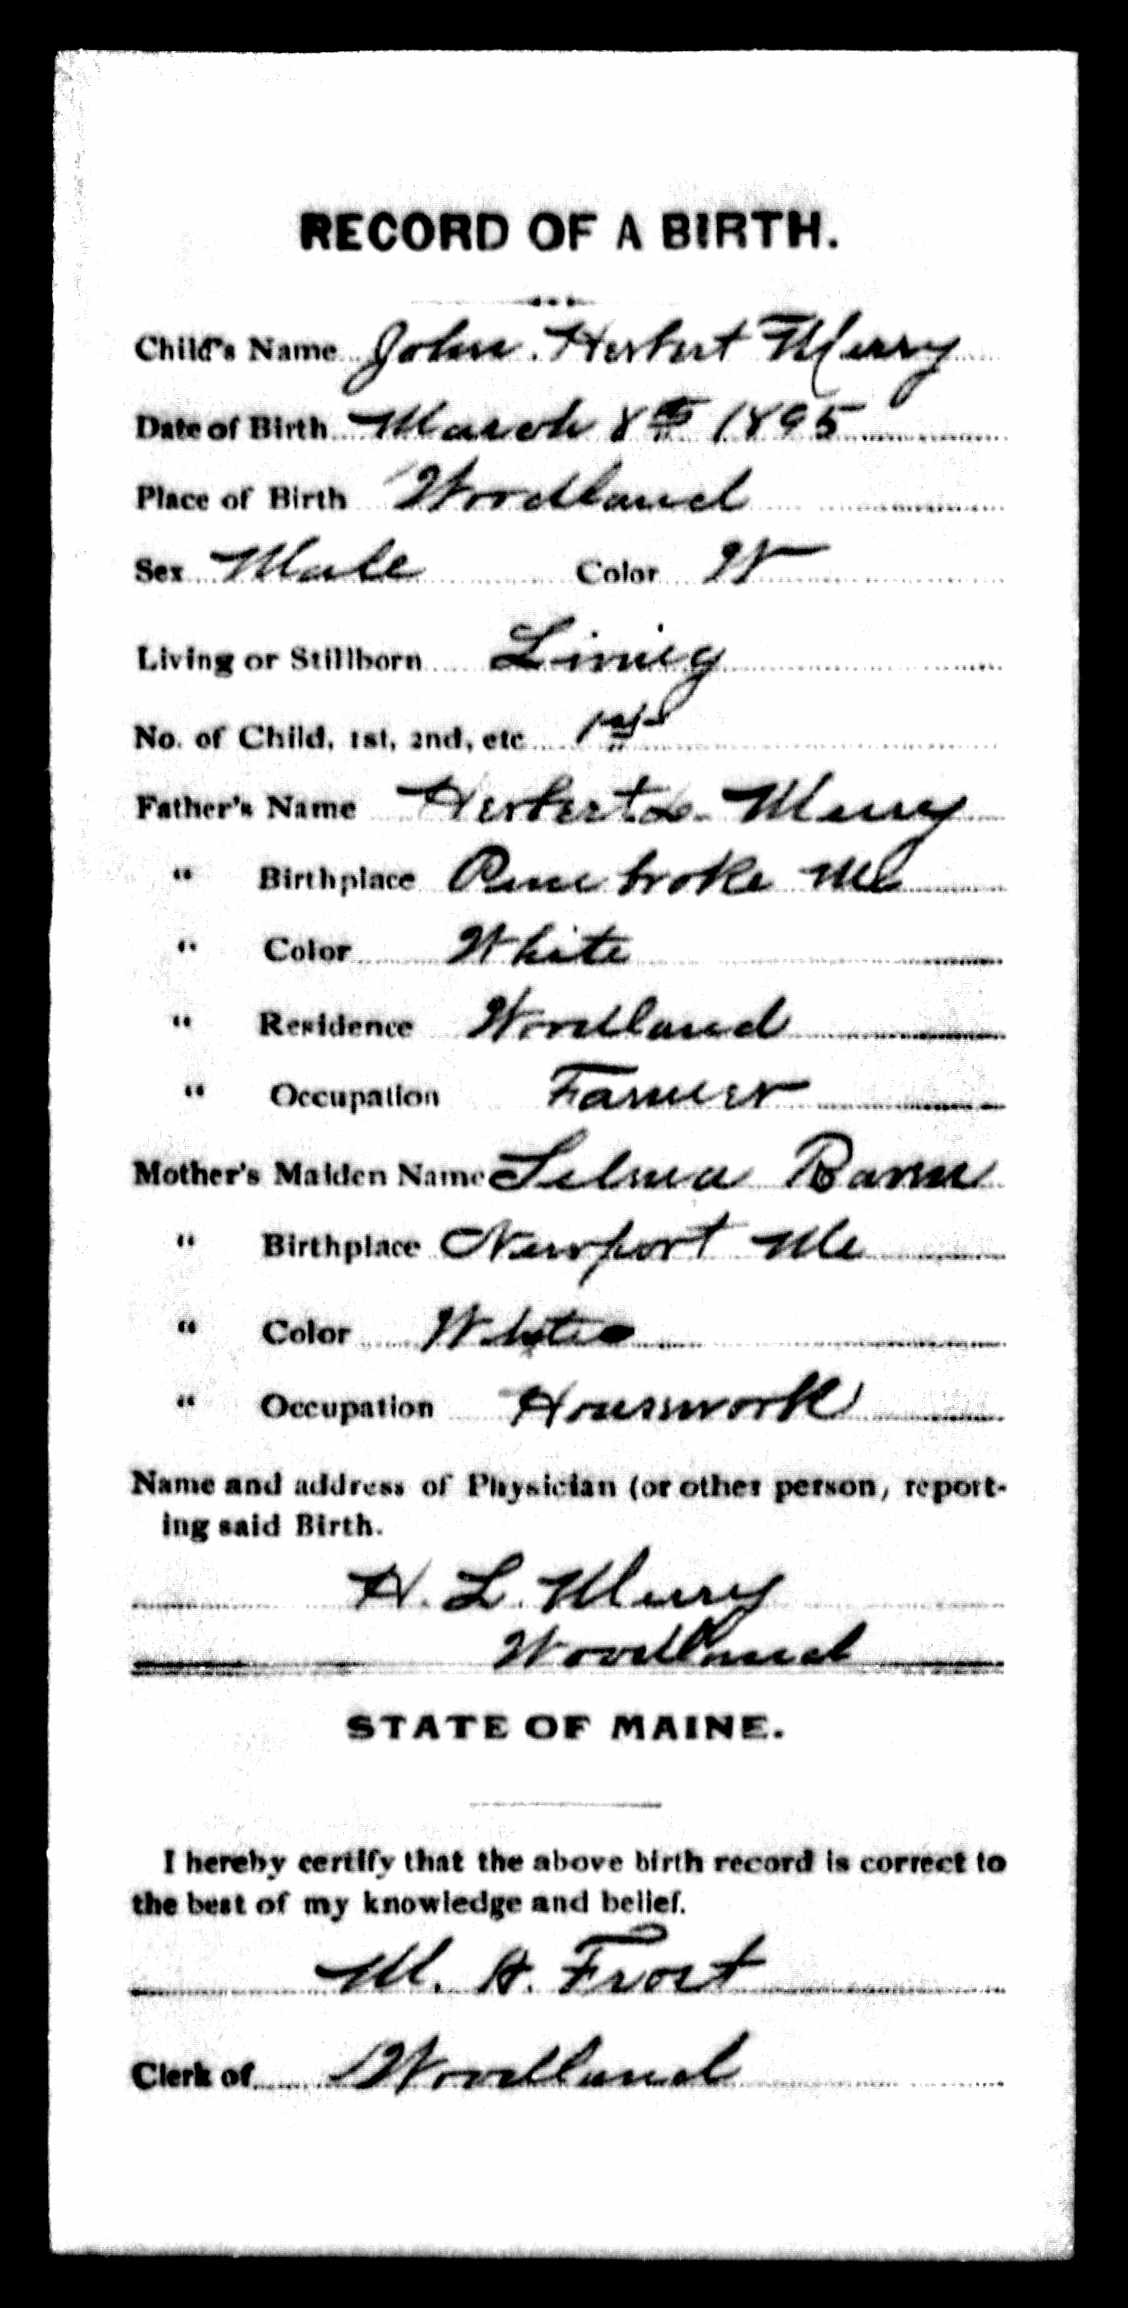 RECORD OF A BIRTH.
Child's Name John Herbert Merry
Date of Birth March 8th 1895
Place of Birth Woodland
Sex Male Color W
Living or Stillborn Living
No. of Child, 1st, 2nd, etc 1st
Father's Name Herbert L. Merry
" Birthplace Pembroke Me
" Color White
" Residence Woodland
" Occupation Farmer
Mother's Maiden Name Selma
" Birthplace Newport Me
" Color White
" Occupation Housework
Name and address of Physician (or other person, report-
ing said Birth.
H. L. Merry
Woodland
STATE OF MAINE.
I hereby certify that the above birth record is correct to
the best of my knowledge and belief.
M. A. Frost
Clerk of Woodland